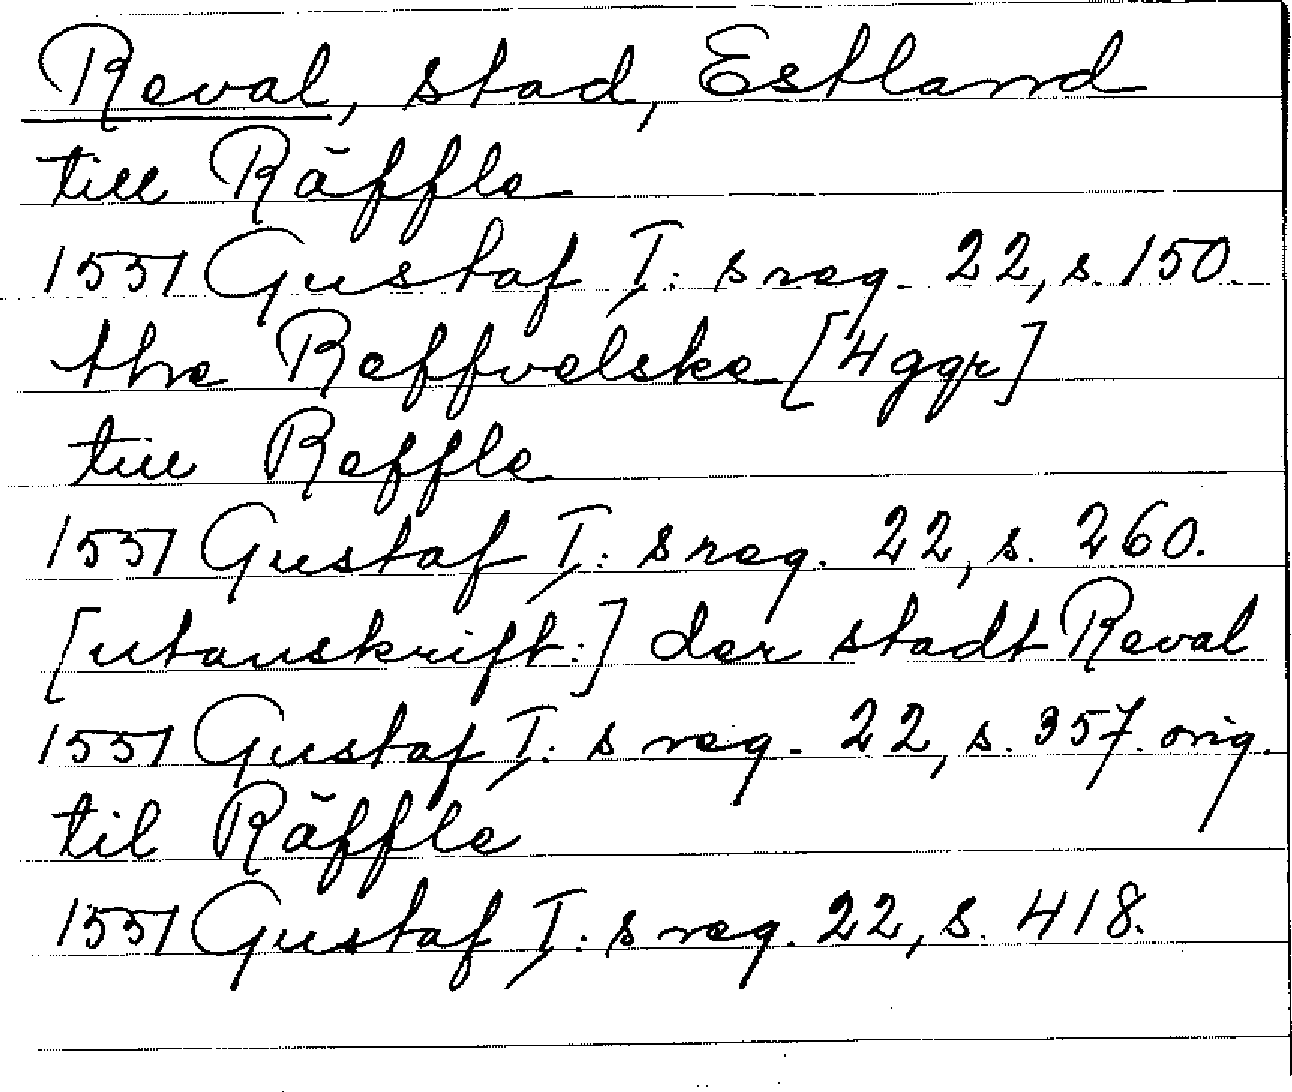 Reval, stad, Estland
till Räffle
1551 Gustaf I:s reg. 22, s. 150.
the Reffvelske [4 ggr]
till Reffle
1551 Gustaf I:s reg. 22, s. 260.
[utanskrift:] der stadt Reval
1551 Gustaf I:s reg. 22, s. 357. orig.
til Räffle
1551 Gustaf I:s reg. 22, s. 418.